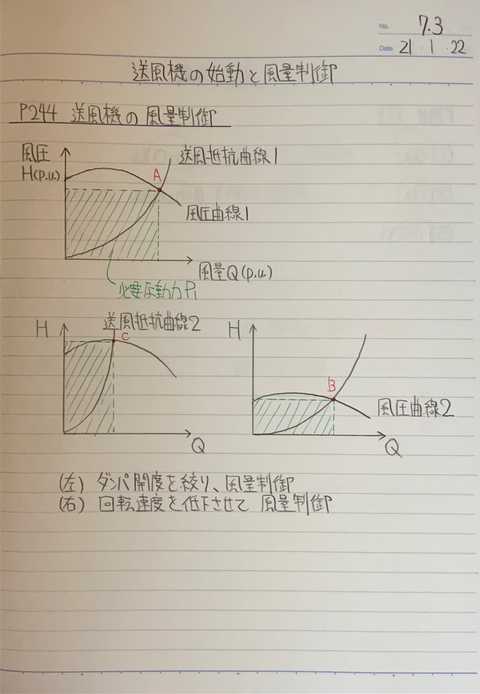 No. 7.3
Date 21 1 22
送風機の始動と風量制御
P244 送風機の風量制御
風圧
H(p.u)
送風抵抗曲線1
A
風圧曲線1
風量Q(p.u.)
必要な動力P1
送風抵抗曲線2
H
C
Q
H
B
風圧曲線2
Q
(左) ダンパ開度を絞り、風量制御
(右) 回転速度を低下させて 風量制御